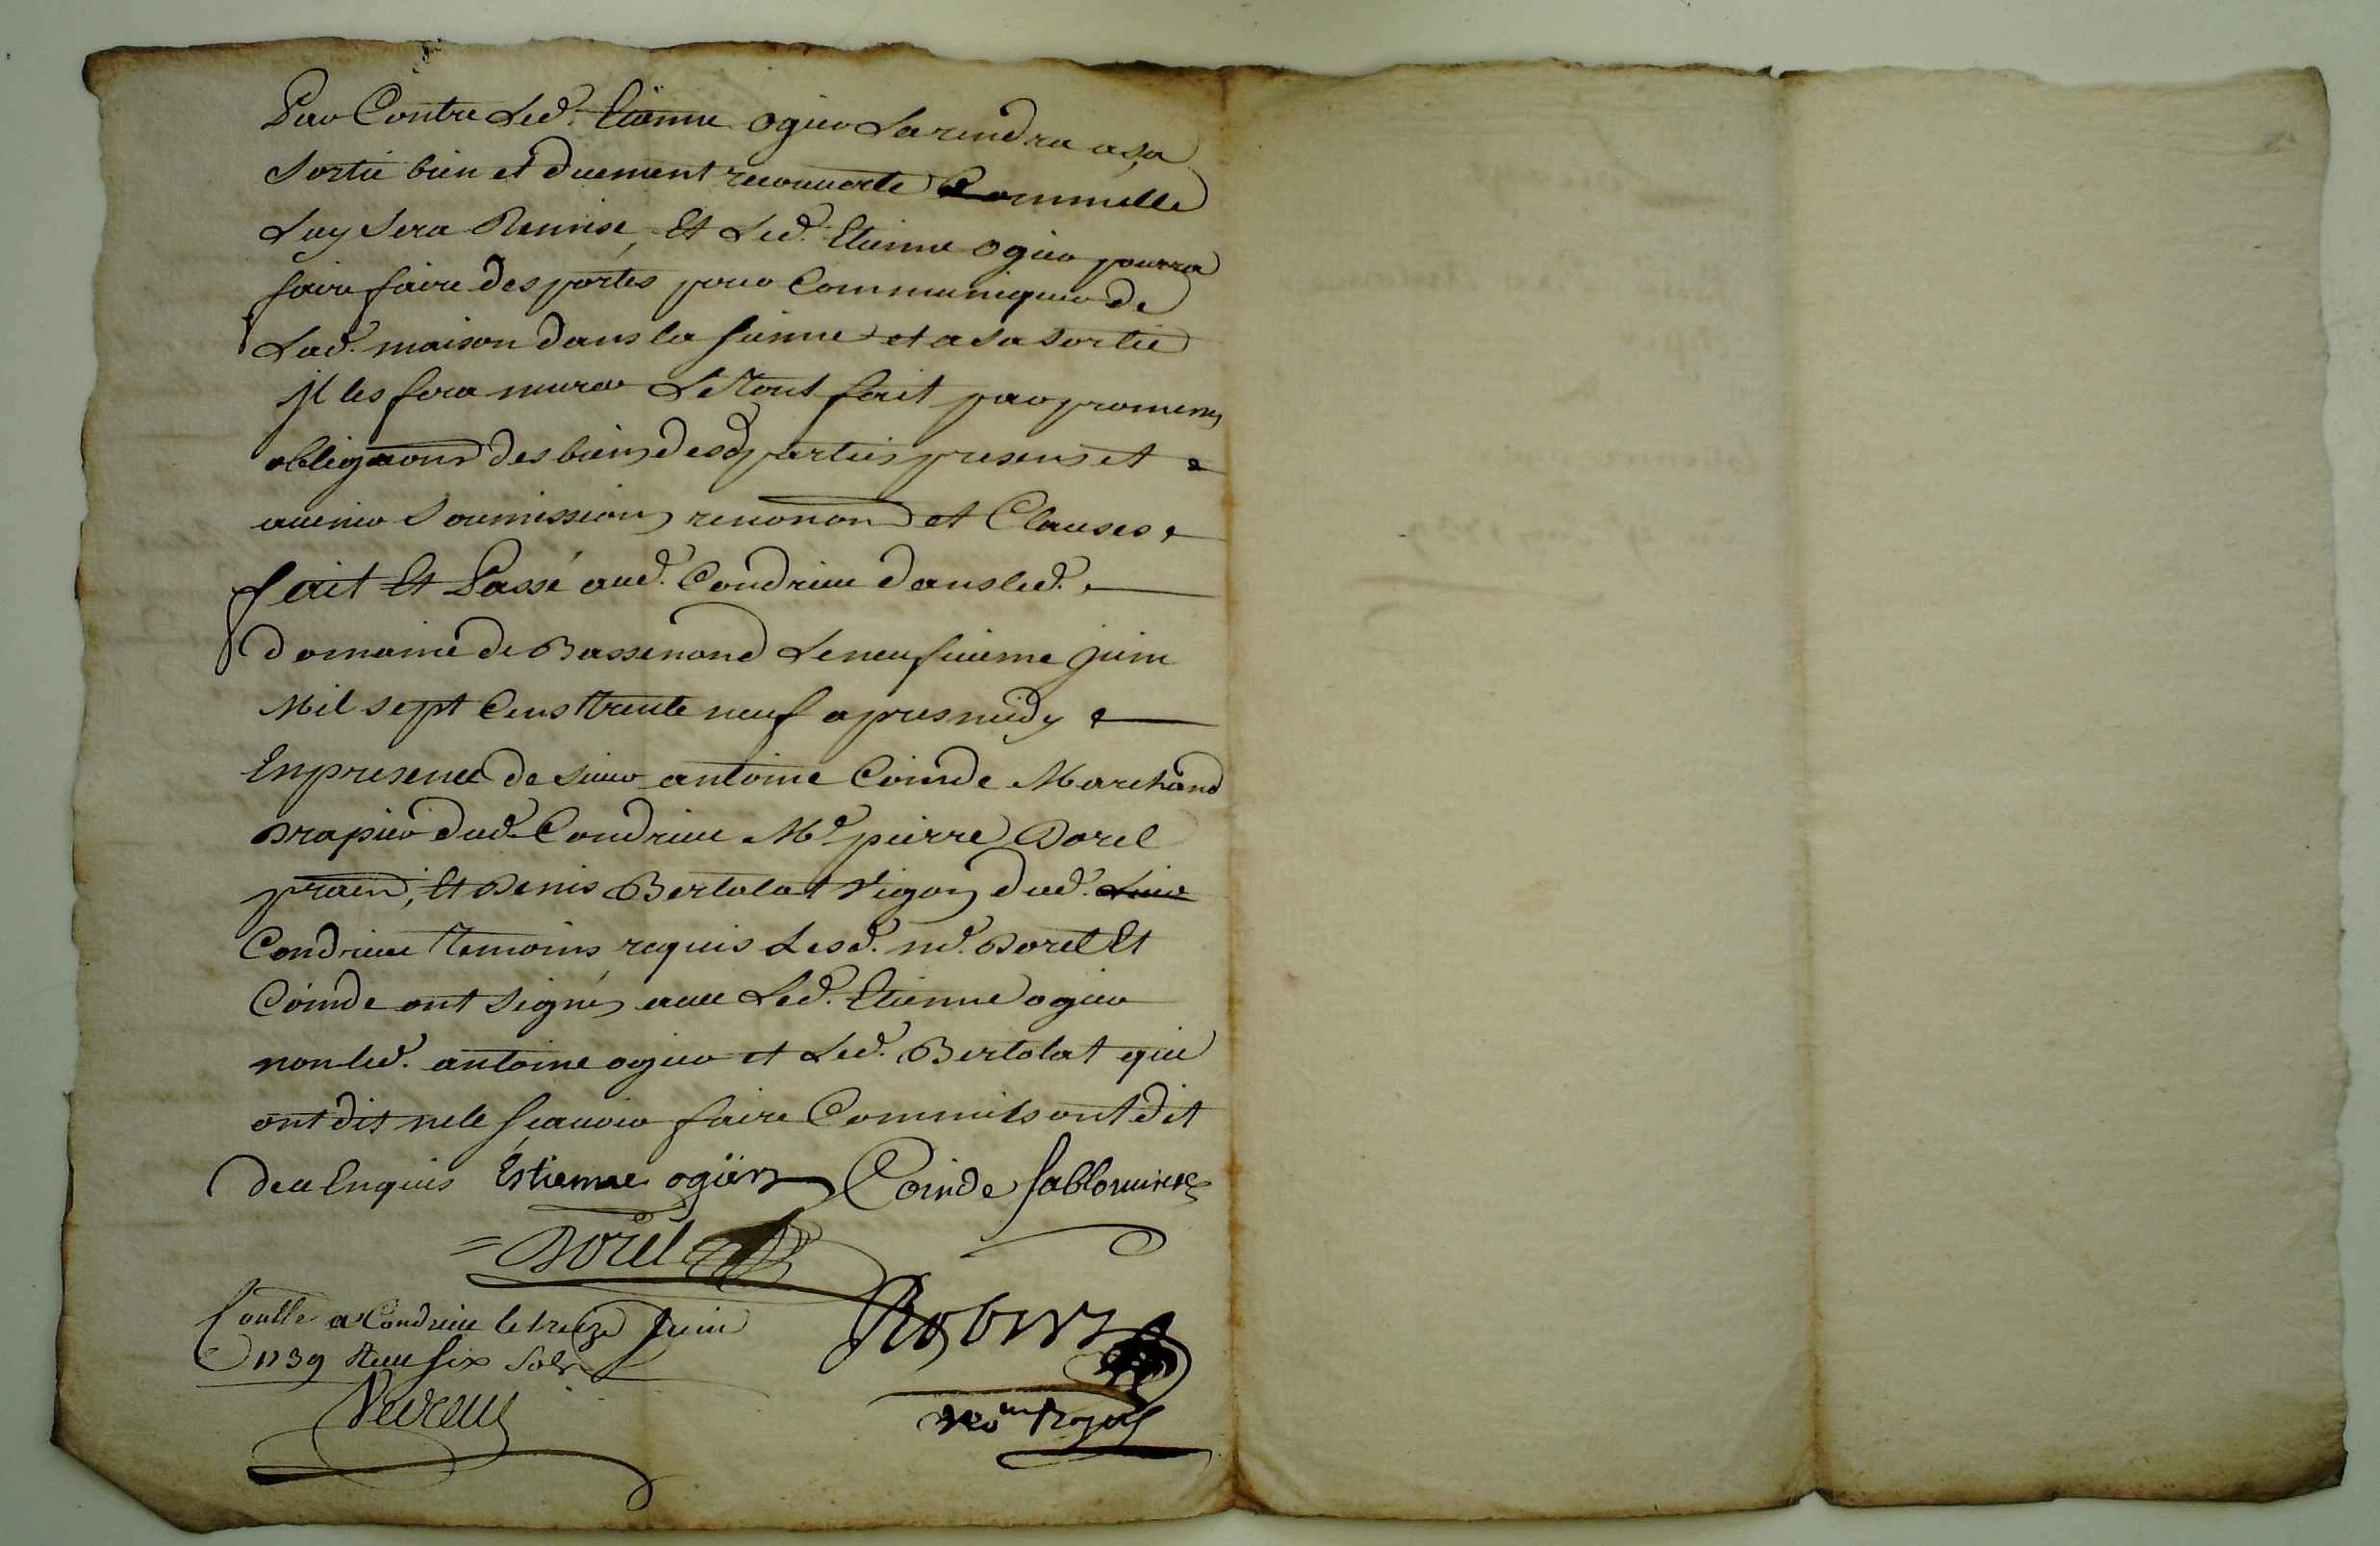 Par Contre Led. Etienne ogier La rendra a sa
Sortie bien et duement recouverte Comm'elle
Luy Sera Remise, Et Led. Etienne ogier pourra
faire faire des portes pour Communiquer de
Lad. maison dans la sienne et a sa sortie
Il les fera murer Le Tout fait par promesses
obligaons des biens desd parties presens et
avenir Soumissions renonons et Clauses
fait Et Passé aud. Condrieu dans led.
domaine de Bassenond Le neufvieme juin
Mil sept Cens trente neuf apres midy
En presence de sieur antoine Coinde Marchand
Drapier dud. Condrieu Me pierre Dorel
praen, Et Denis Bertolat Vigon dud.
Condrieu Temoins requis Lesd. md. Dorel Et
Coinde ont Signés avec Led. Etienne ogier
non led. antoine ogier et Led. Bertolat qui
ont dit ne le sçavoir faire Comm'ils ont dit
de ce Enquis Estienne ogier Coinde
Dorel
Conllé a Condrieu le treize Juin
1739 Reçu six Sols
Robert
Nore Royal